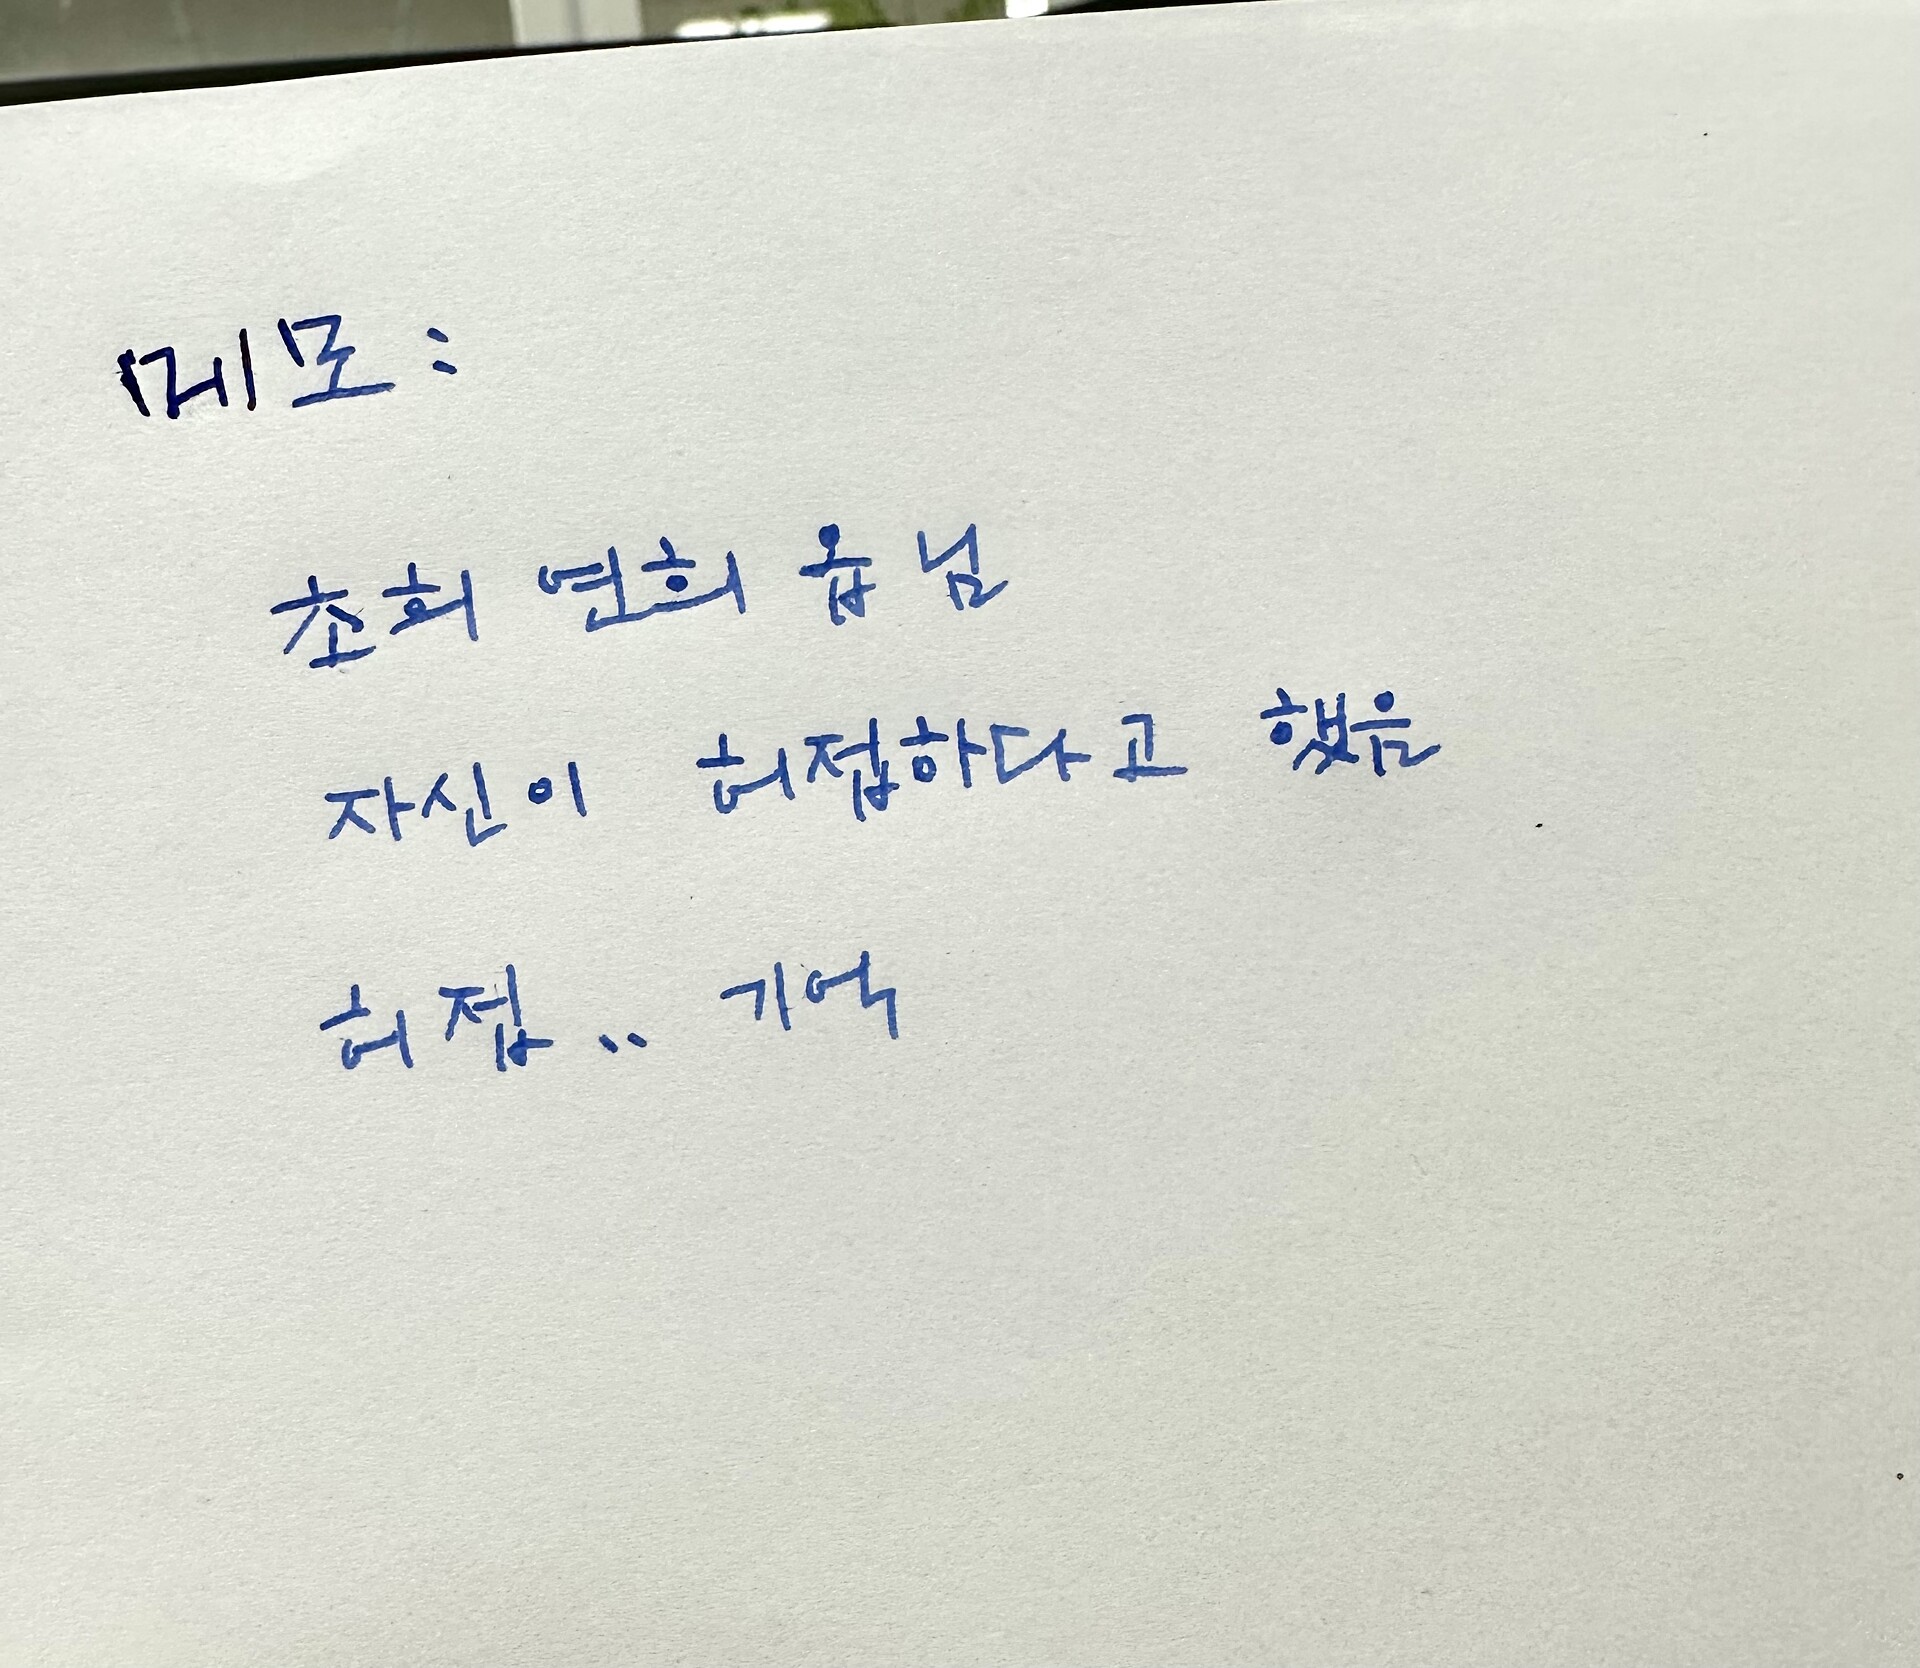 메모:
초희 연희 읍님
자신이 허접하다고 했음
허접.. 기억